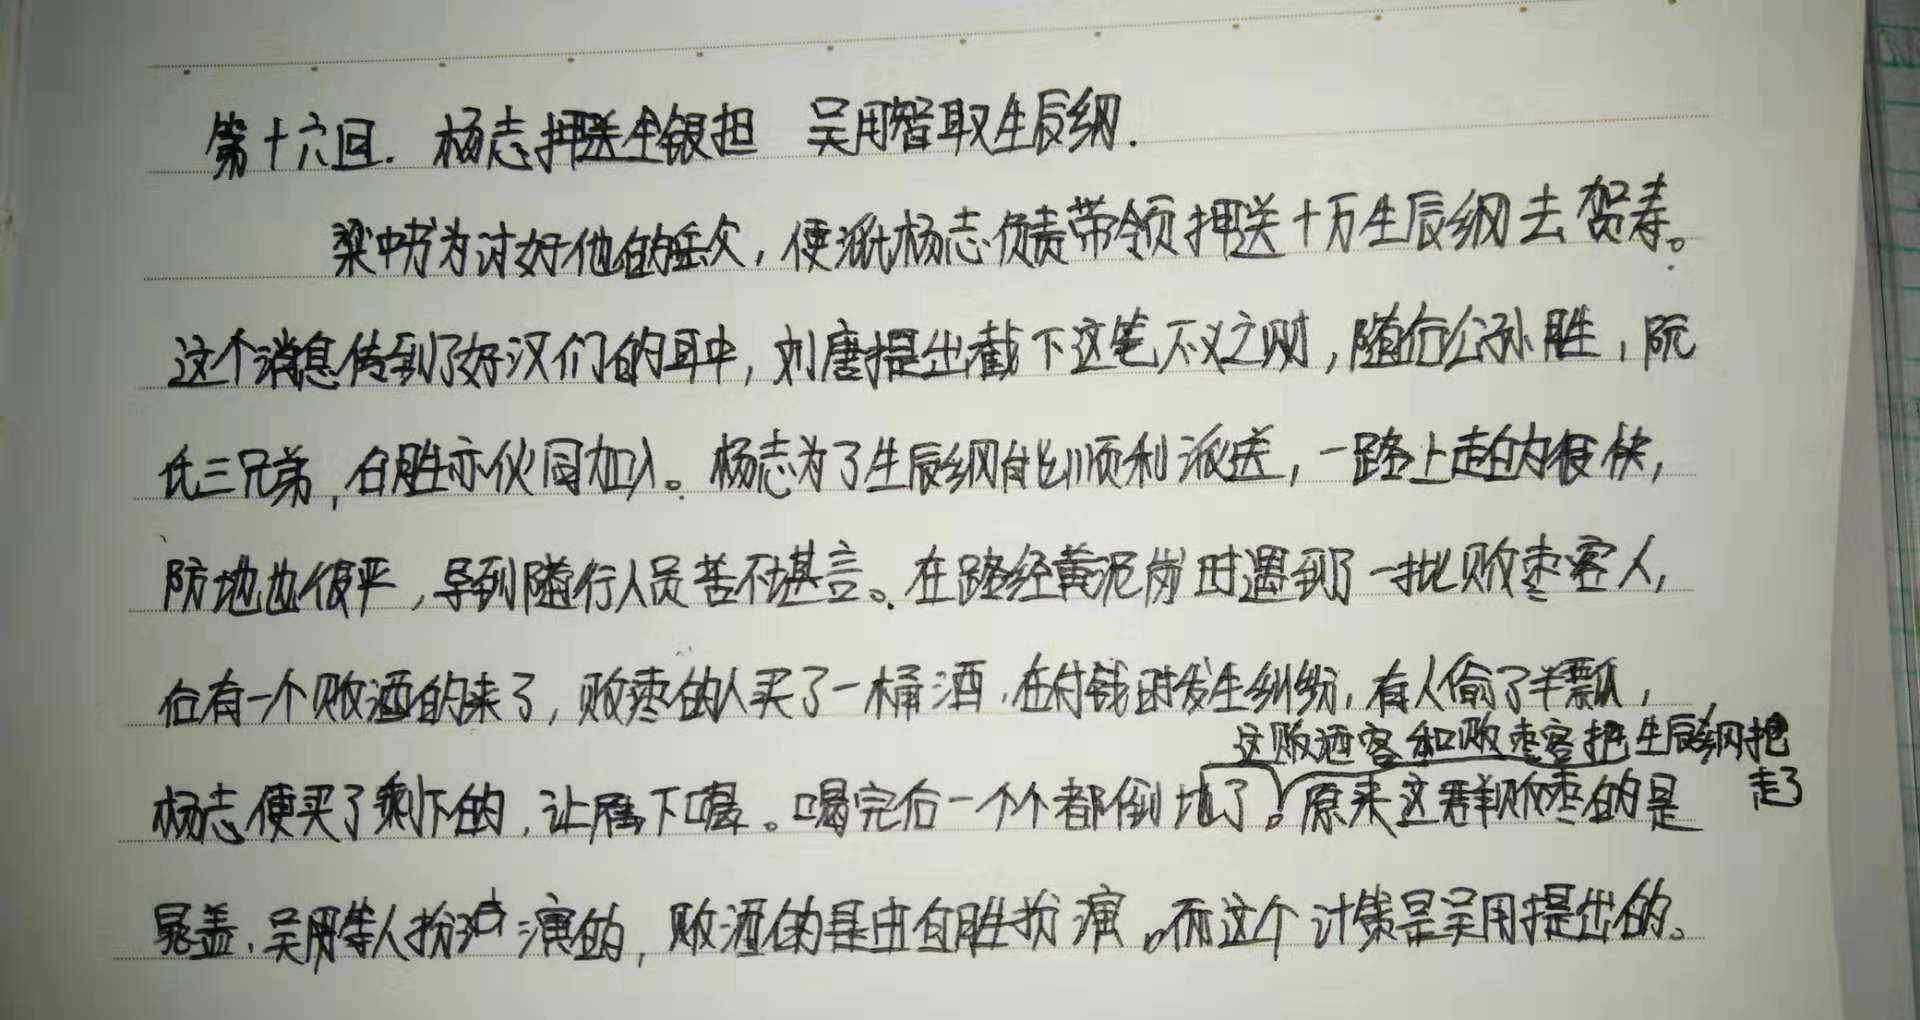 第十六回. 杨志押送金银担 吴用智取生辰纲.
梁中书为讨好他的岳父, 便派杨志负责带领押送十万生辰纲去贺寿。
这个消息传到了好汉们的耳中, 刘唐提出截下这笔不义之财, 随行公孙胜, 阮
氏三兄弟, 白胜亦伙同加入。杨志为了生辰纲能顺利派送, 一路上走的很快,
防地也很严, 导到随行人员苦不堪言。在路经黄泥岗时遇到了一批贩枣客人,
后有一个贩酒的来了, 贩枣的人买了一桶酒, 在付钱时发生纠纷, 有人偷了半瓢,
这贩酒客和贩枣客把生辰纲抢
走了
杨志便买了剩下的, 让属下喝。喝完后一个个都倒地了。原来这群贩枣的是
晁盖, 吴用等人扮演的, 贩酒的是由白胜扮演。而这个计策是吴用提出的。